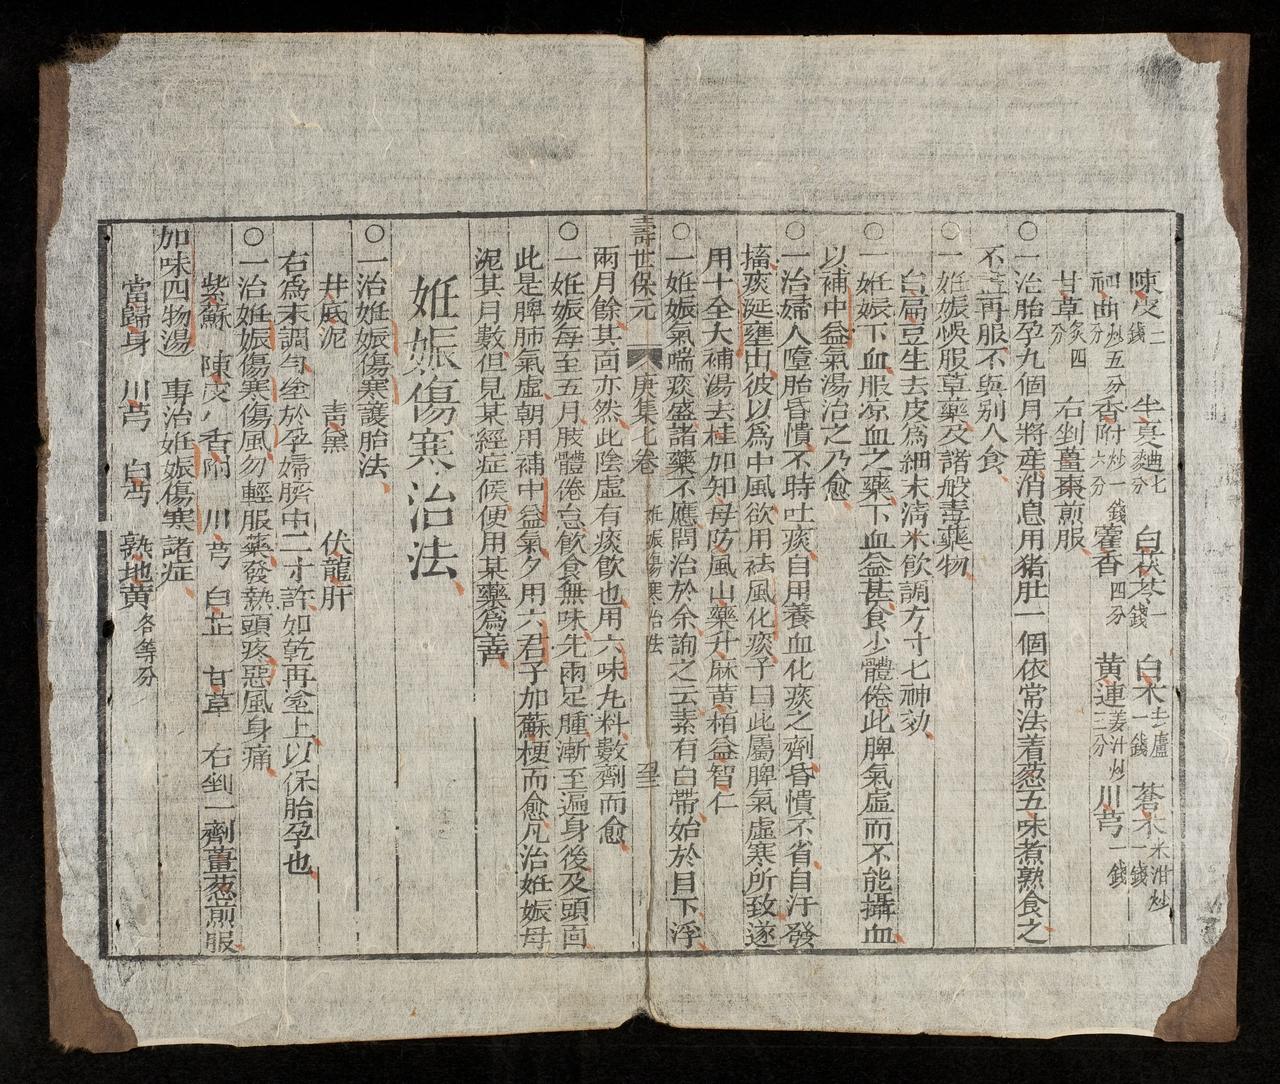 陳皮二錢 半夏麯七分 白茯苓一錢 白术去蘆一錢 蒼术米泔炒一錢
神曲炒五分 香附炒一錢六分 藿香四分 黃連姜汁炒三分 川芎一錢
甘草炙四分 右剉薑棗煎服
○一治胎孕九個月將産消息用猪肚一個依常法着葱五味煮熟食之
不盡再服不與別人食
○一妊娠悞服草藥及諸般毒藥物
白扁豆生去皮爲細末清米飲調方寸匕神効
○一妊娠下血服凉血之藥下血益甚食少體倦此脾氣虛而不能攝血
以補中益氣湯治之乃愈
○一治婦人墮胎昏憒不時吐痰自用養血化痰之劑昏憒不省自汗發
搐痰涎壅出彼以爲中風欲用祛風化痰予曰此屬脾氣虛寒所致遂
用十全大補湯去桂加知母防風山藥升麻黃栢益智仁
○一妊娠氣喘痰盛諸藥不應問治於余詢之云素有白帶始於目下浮
壽世保元 庚集七卷 妊娠傷寒治法
兩月餘其面亦然此陰虛有痰飲也用六味丸料數劑而愈
○一妊娠每至五月肢體倦怠飲食無味先兩足腫漸至遍身後及頭面
此是脾肺氣虛朝用補中益氣夕用六君子加蘇梗而愈凡治妊娠毋
泥其月數但見某經症候便用某藥爲善
妊娠傷寒治法
○一治妊娠傷寒護胎法
井底泥 青黛 伏龍肝
右爲末調勻塗於孕婦臍中二寸許如乾再塗上以保胎孕也
○一治妊娠傷寒傷風勿輕服藥發熱頭疼惡風身痛
紫蘇 陳皮 香附 川芎 白芷 甘草 右剉一劑薑葱煎服
加味四物湯 專治妊娠傷寒諸症
當歸身 川芎 白芍 熟地黃各等分